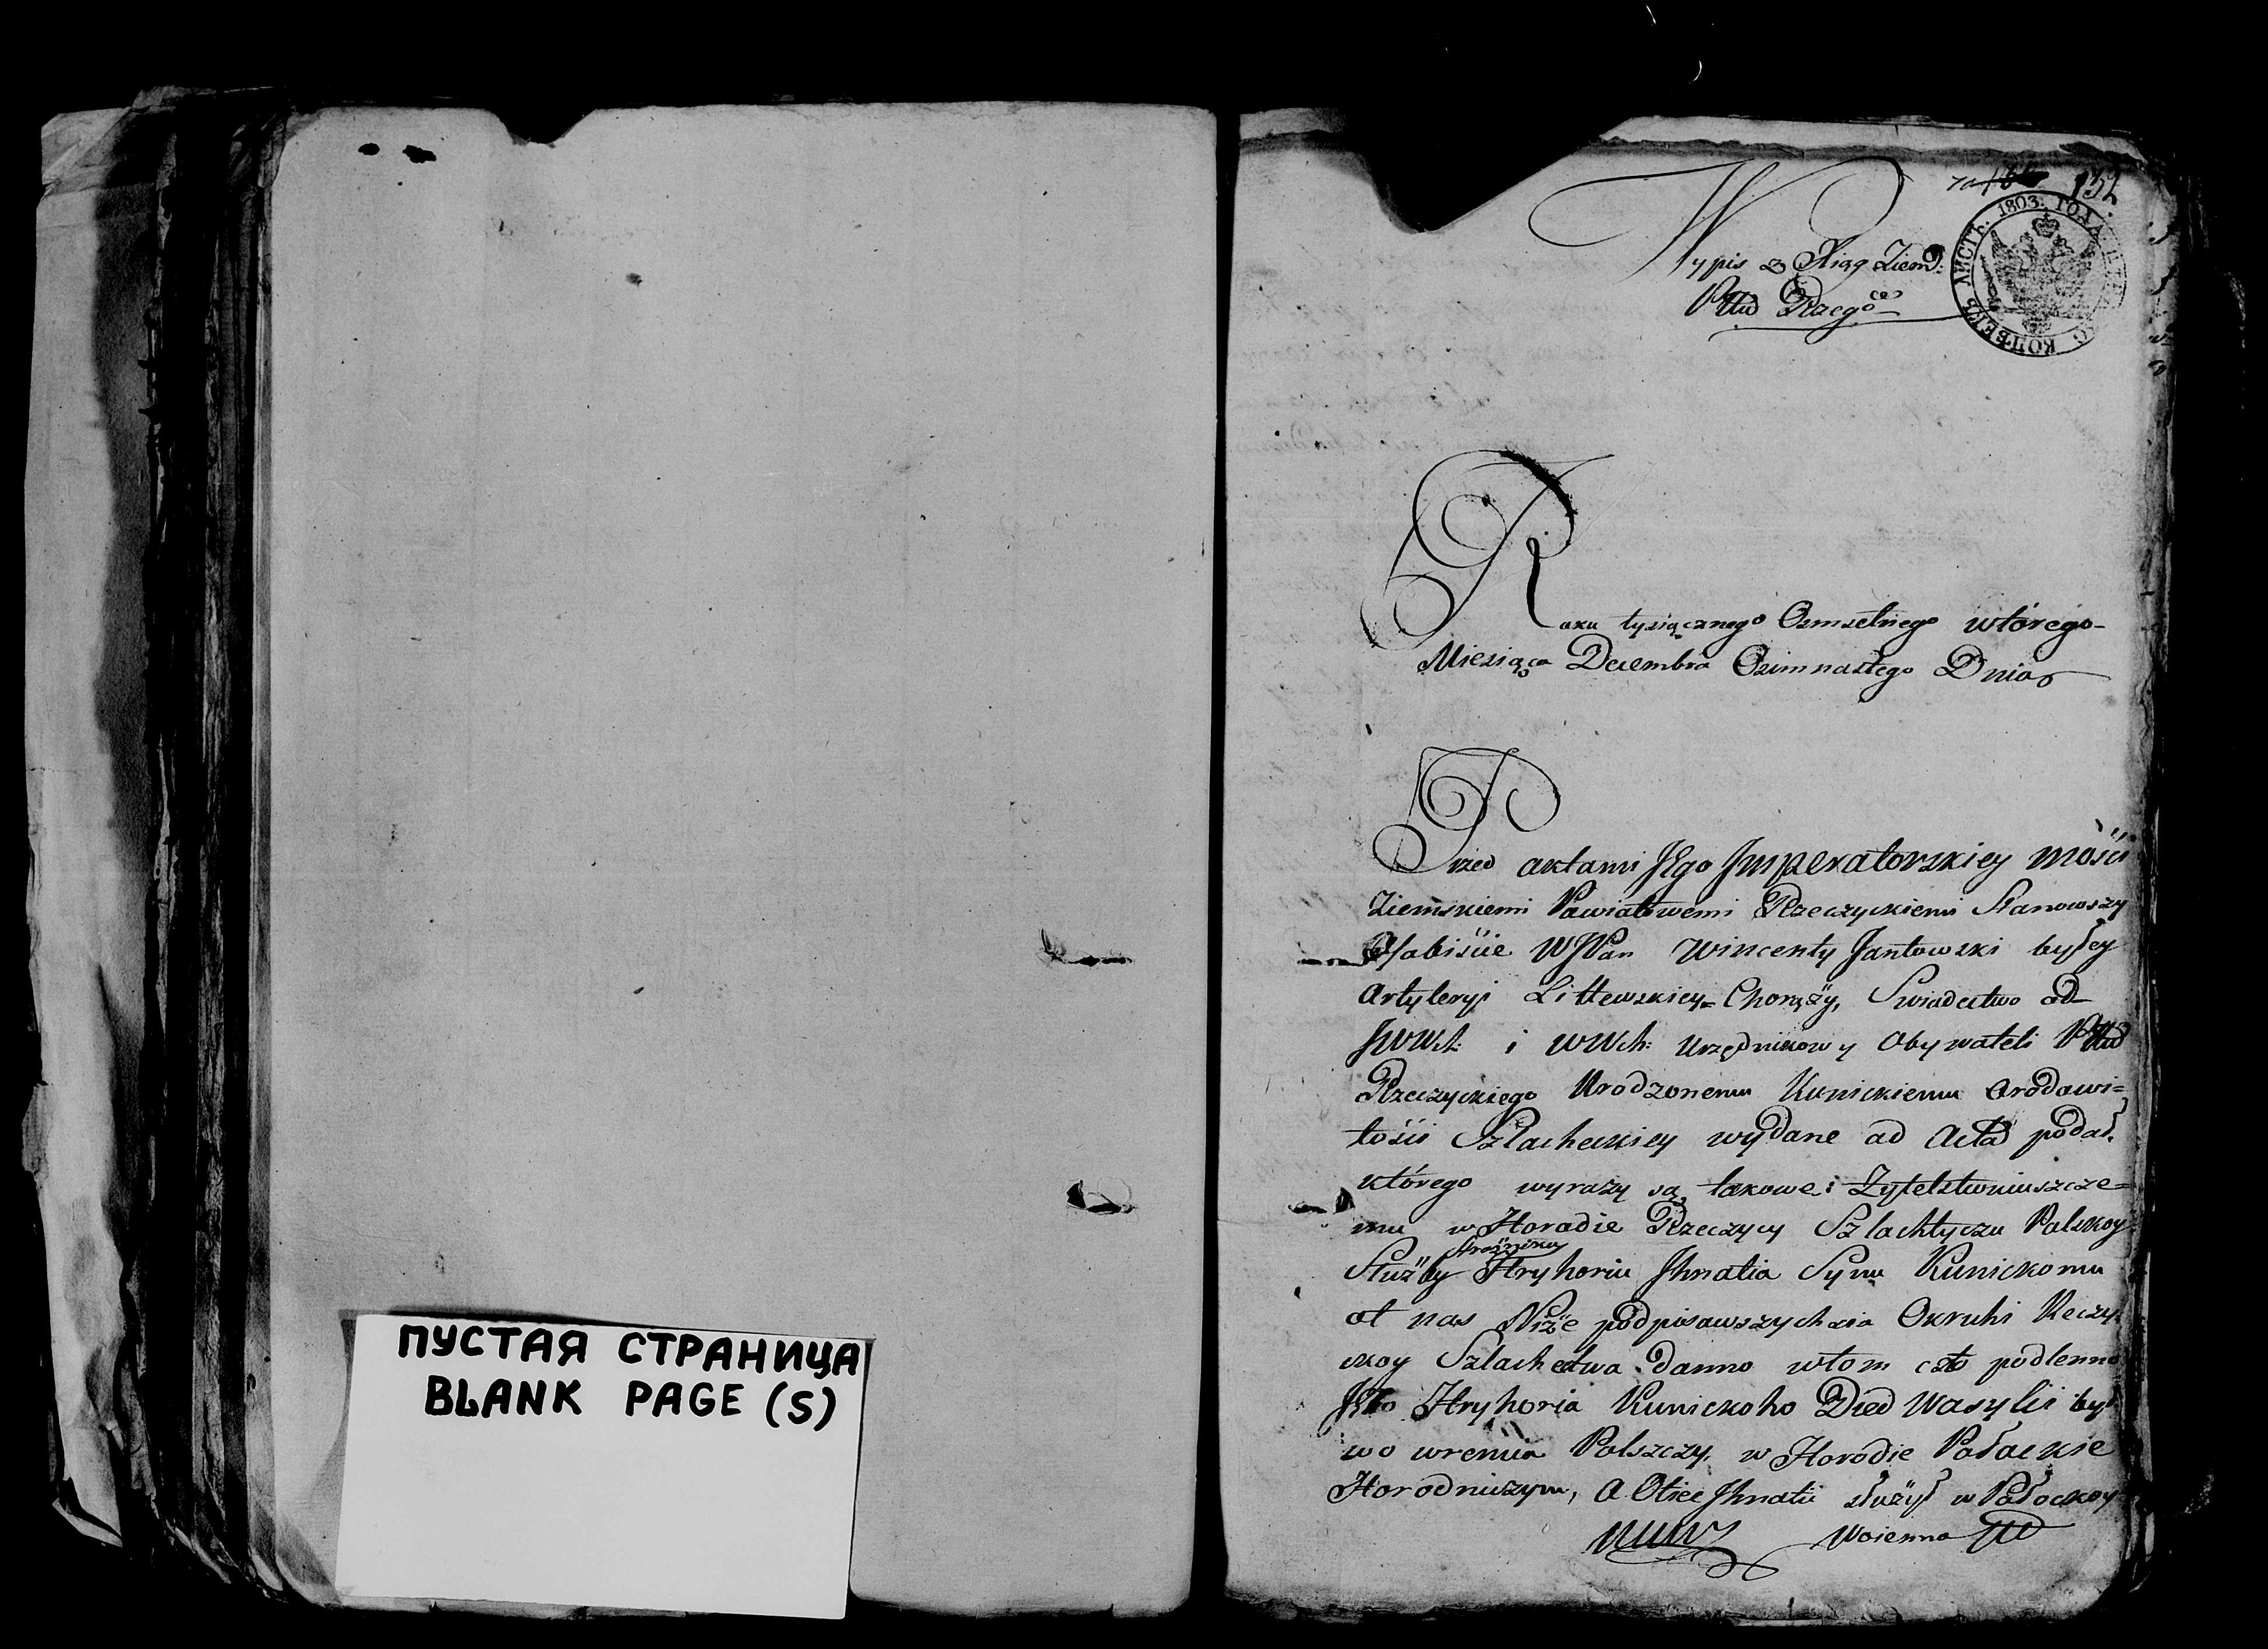 ПУСТАЯ СТРАНИЦА
BLANK PAGE (S)
152
1803. ГОДА. КОПѢЕКЪ ЛИСТЪ.
Wypis z Xiąg Ziem:
Pttu Rzegoce
Roku tysiącznego Osmsetnego wtórego
Miesiąca Decembra Osimnastego Dnia
Przed aktami JEgo Imperatorskiey mości
Ziemskiemi Powiatowemi Rzeczyckiemi Stanowszy
Osobiście WJPan Wincenty Jantowski byłey
Artyleryi Littewskiey Chorąży, Swiadectwo od
JWWch: i WWch: Urzędnikow y Obywateli Pttu
Rzeczyckiego Urodzonemu Kunickiemu o rodowi=
tości Szlacheckiey wydane ad Acta podał,
którego wyrazy są takowe: Żytelstwuiuszcze=
mu w Horodie Rzeczycy Szlachtyczu Polskoy
Strażniku
Służby Hryhoriu Ihnatia Synu Kunickomu
ot nas Niże podpisawszychsia Okruhi Reczy
ckoy Szlachectwa danno wtom czto podlenno
JEho Hryhoria Kunickoho Died Wasyli był
wo wremia Polszczy, w Horodie Połockie
Horodniczym, A Otiec Ihnatii służył w Połockoy
Woienno